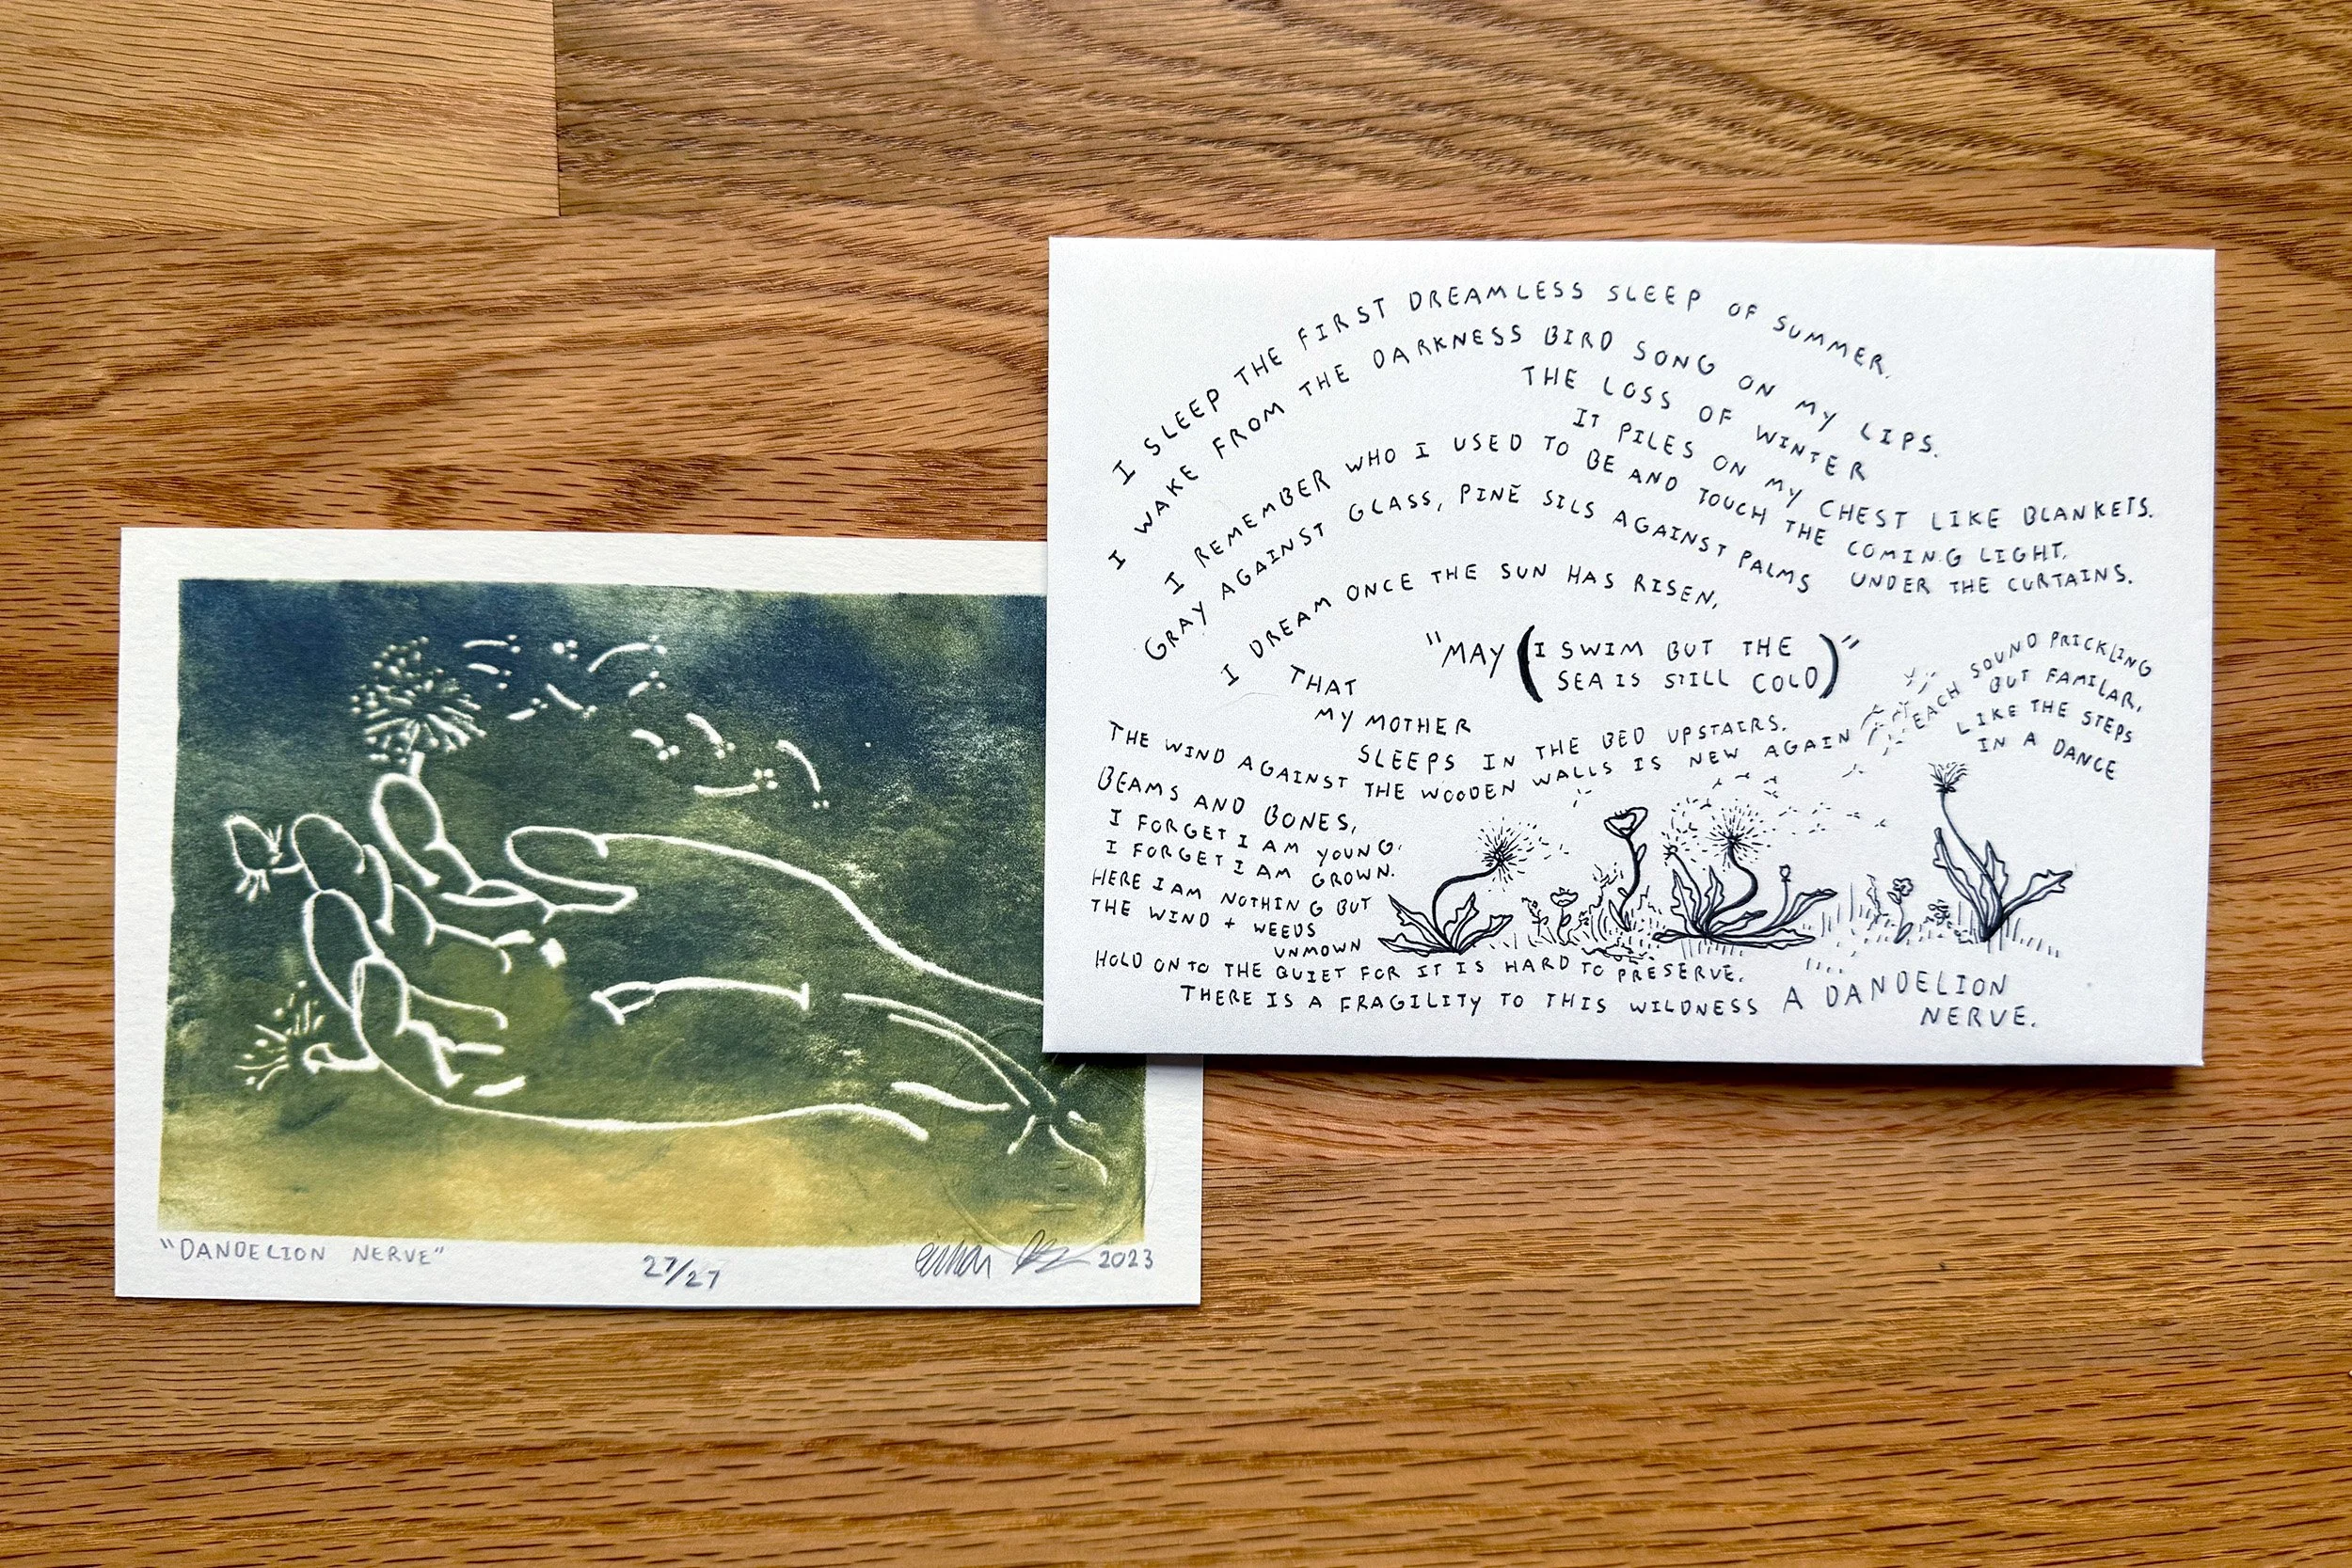 I SLEEP THE FIRST DREAMLESS SLEEP OF SUMMER.
I WAKE FROM THE DARKNESS BIRD SONG ON MY LIPS.
THE LOSS OF WINTER
IT PILES ON MY CHEST LIKE BLANKETS.
I REMEMBER WHO I USED TO BE AND TOUCH THE COMING LIGHT,
GRAY AGAINST GLASS, PINE SILS AGAINST PALMS UNDER THE CURTAINS.
I DREAM ONCE THE SUN HAS RISEN,
"MAY (I SWIM BUT THE
SEA IS STILL COLD)"
THAT
MY MOTHER
SLEEPS IN THE BED UPSTAIRS.
THE WIND AGAINST THE WOODEN WALLS IS NEW AGAIN
EACH SOUND PRICKLING
BUT FAMILAR,
LIKE THE STEPS
IN A DANCE
BEAMS AND BONES,
I FORGET I AM YOUNG.
I FORGET I AM GROWN.
HERE I AM NOTHING BUT
THE WIND + WEEDS
UNMOWN
HOLD ONTO THE QUIET FOR IT IS HARD TO PRESERVE.
THERE IS A FRAGILITY TO THIS WILDNESS A DANDELION
NERVE.
"DANDELION NERVE"
27/27
2023